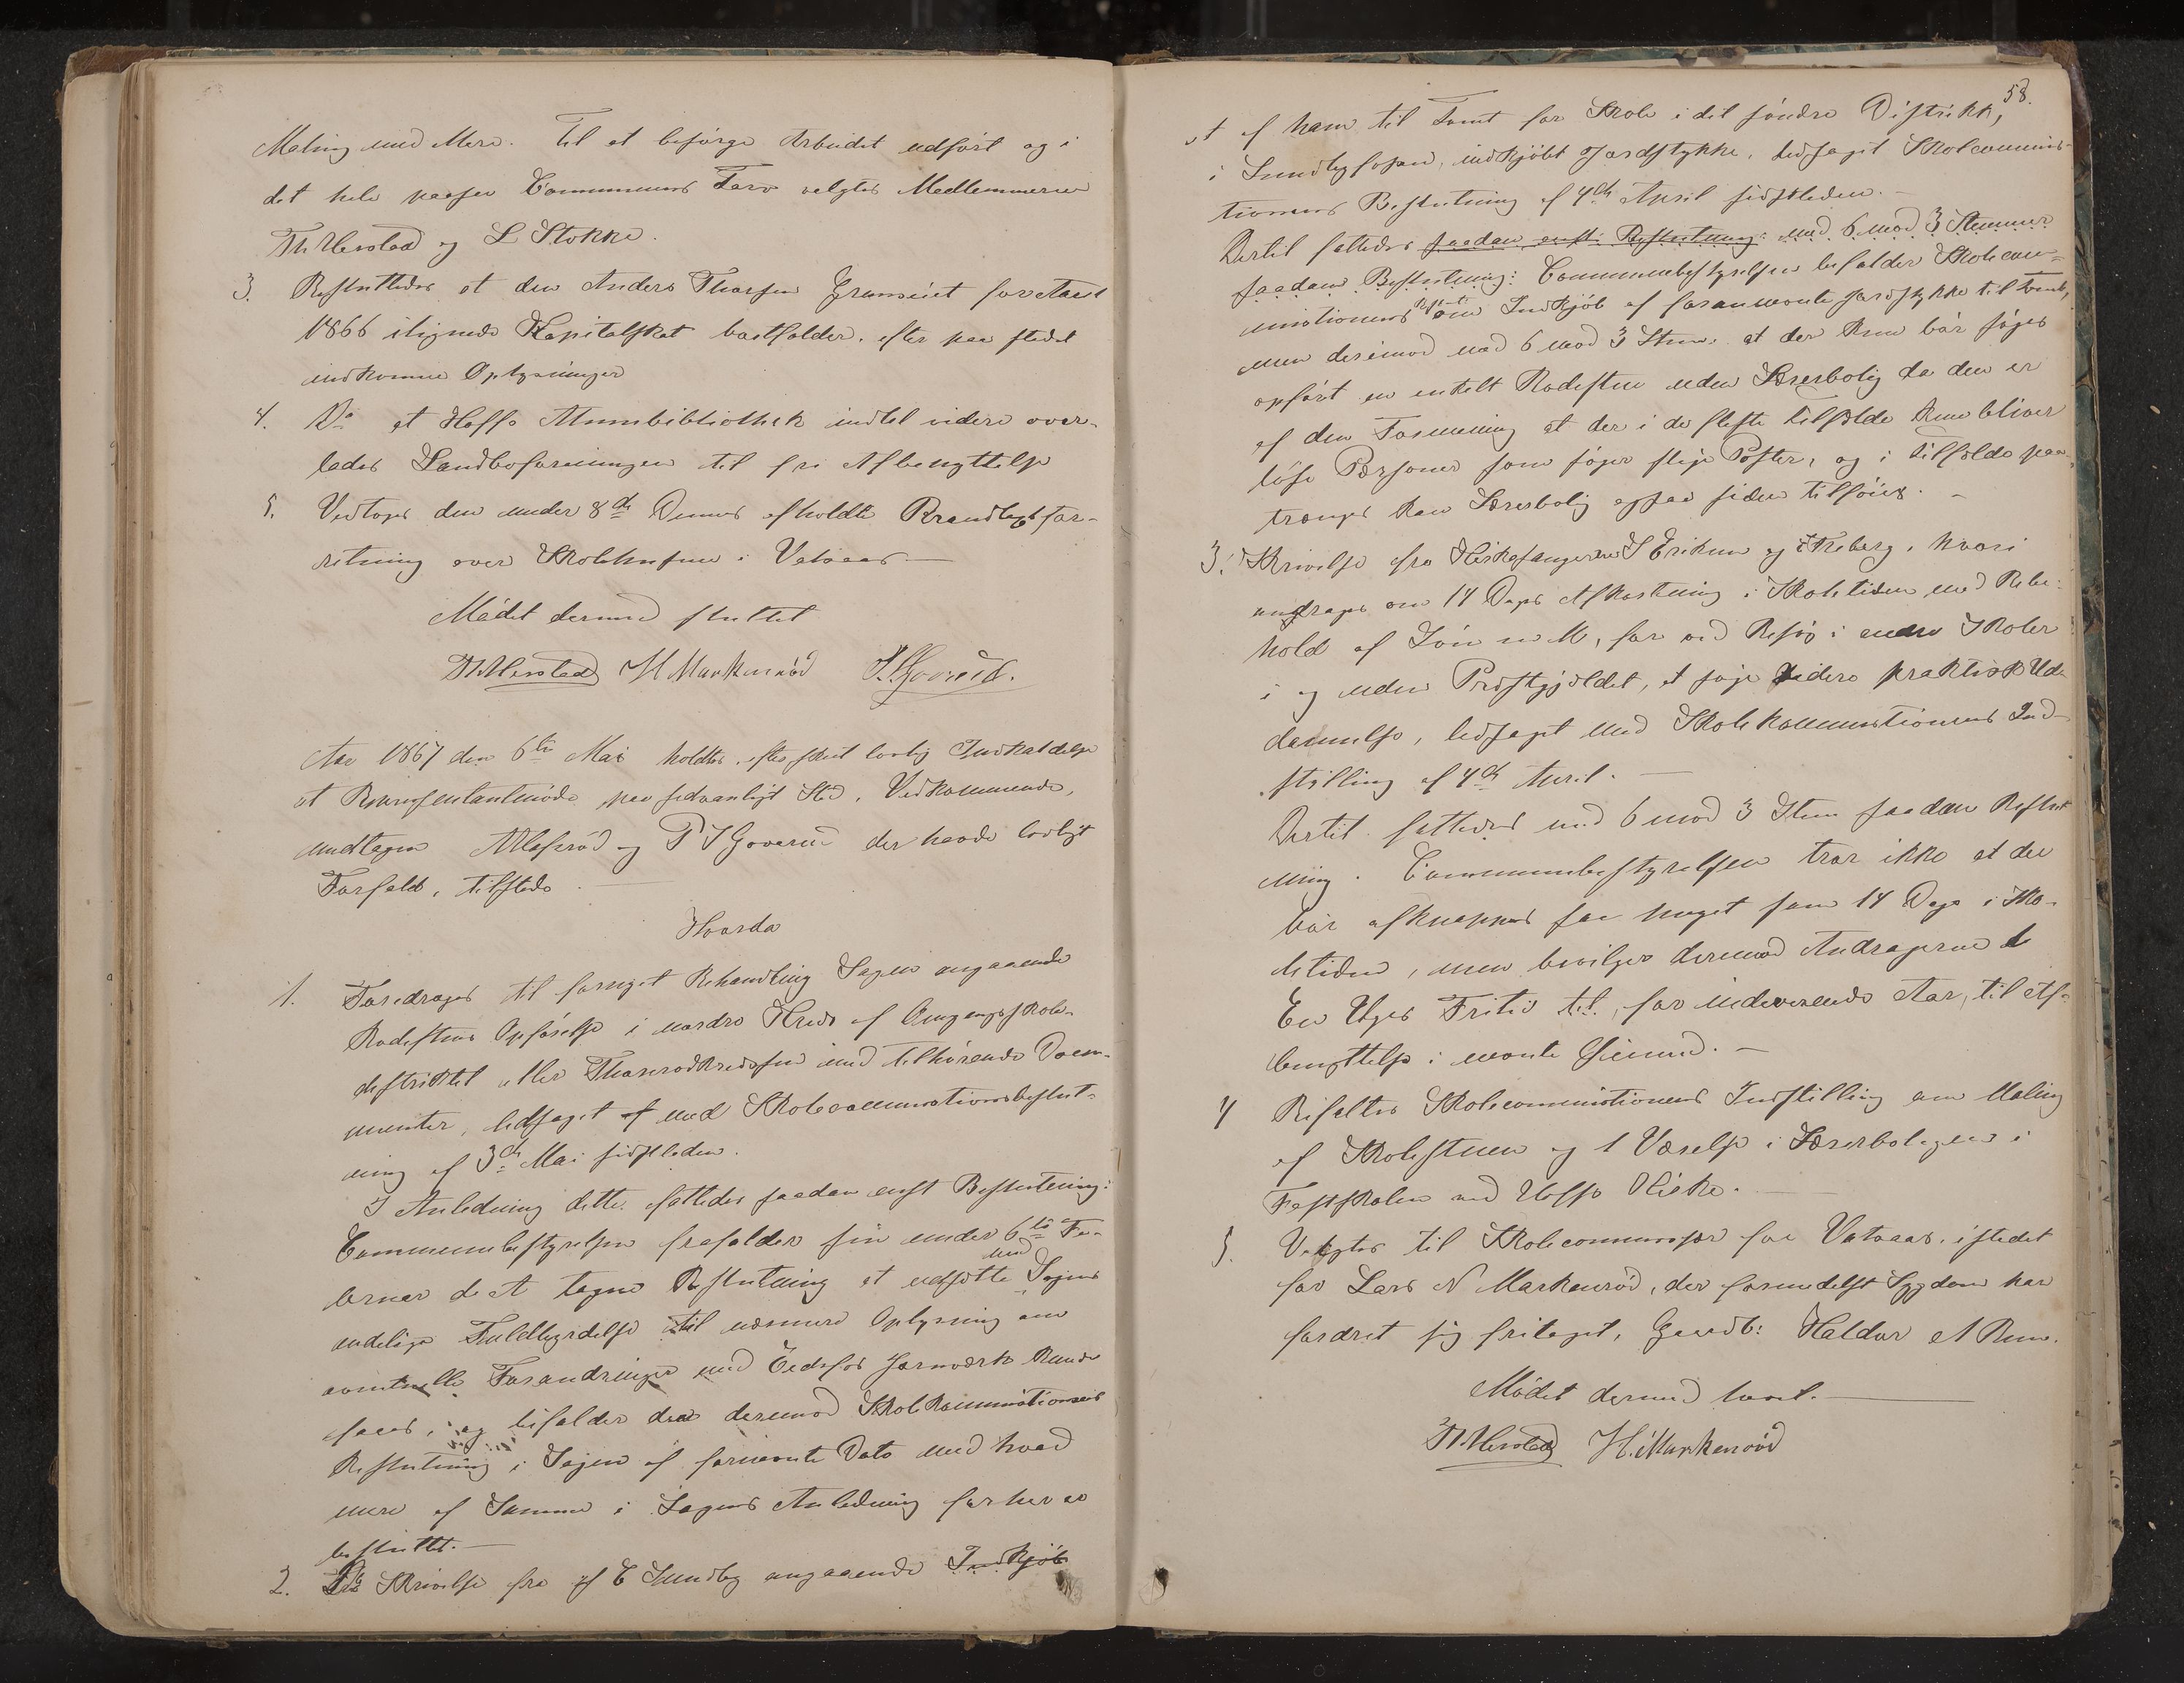 Maling med Mere. Til at besörge Arbeidet udfört og i
det hele paasee Communens Tarv valgtes Medlemmerne
Th. Uerstad og L Stokke.
3. Besluttedes at den Anders Thorsen Grumsöiet for Aaret
1866 ilignede Kapitalskat bortfalder, efter paa stedet
indkomne Oplysninger
4. Do at Hoffs Almuebibliothek indtil videre over-
lades Landboforeningen til fri Afbenyttelse
5. Vedtoges den under 8de Dennes afholdte Brandtaxtfor-
retning over Skolehusene i Vataas —
Mödet dermed sluttet
Aar 1867 den 6te Mai holdtes, efter skeet lovlig Indkaldelse
et Repræsentantmöde paa sedvanligt Sted. Vedkommende,
undtagen og P J Goverud der havde lovligt
Forfald, tilstede. —
Hvorda
1. Foredroges til fornyet Behandling Sagen angaaende
Rodestues Opförelse i nordre Kreds af Omgangsskole-
distriktet eller med tilhörende Docu-
menter, ledsaget af med Skolecommissionsbeslut-
ning af 3de Mai sidstleden.
I Anledning dette fattedes saadan enst Beslutning:
Communebestyrelsen frafalder sin under 6te Fe-
bruar d. A. tagne Beslutning at udsætte med Sagens
endelige Fuldbyrdelse til nærmere Oplysning om
eventuelle Forandringer med Eedsfos Jernværk kunde
faaes, og bifalder den derimod Skolekommissionens
Beslutning i Sagen af fornævnte Dato med hvad
mere af Samme i Sagens Anledning forhen er
besluttet. —
2. Do Skrivelse fra E Sundby angaaende Indkjöb
58.
et af ham til Tomt for Skole i det söndre Distrikt,
i indkjöbt Jordstykke, ledsaget Skolecommis-
tionens Beslutning af 4de April sidstleden. —
Dertil fattedes saadan enst: Beslutning: med 6 mod 3 Stemmer
saadan Beslutning: Communebestyrelsen bifalder Skolecom-
missionens Beslut: om Indkjöb af forannævnte Jordstykke til Tomt,
men derimod med 6 mod 3 Stem: at der kun bör söges
opfört en enkelt Rodestue uden Lærerbolig da den er
af den Formening at der i de fleste Tilfælde kun bliver
löse Personer som söger slige Poster, og i Tilfælde paa-
trænges kan Lærerbolig ogsaa siden tilföies. —
3. Skrivelse fra Kirkesangerne S Eriksen og Skeberg, hvori
andrages om 14 Dages Afkortning i Skoletiden med BeBe-
hold af Lön m M, for ved Besög i andre Skoler
i og uden Præstgjeldet, at söge videre praktisk Ud-
dannelse, ledsaget med Skolekommissionens Ind-
stilling af 4de April. —
Dertil fattedes med 6 mod 3 Stem saadan Beslut
ning. Communebestyrelsen tror ikke at der
bör afknappes saa meget som 14 Dage i Sko-
letiden, men bevilger derimod Andragerne
En Uges Fritid til, for indeværende Aar, til Af-
benyttelse i nævnte Öiemed. —
4 Bifaltes Skolecommissionens Indstilling om Maling
af Skolestuen og 1 Værelse i Lærerboligen i
Fastskolen ved Hoffs Kirke. —
5. Valgtes til Skolecommissær for Vataas, istedet
for Lars N Markeröd, der formedelst Sygdom har
fordret sig fritaget, Gaardb: Haldor A Ruu.
Mödet dermed hævet. —